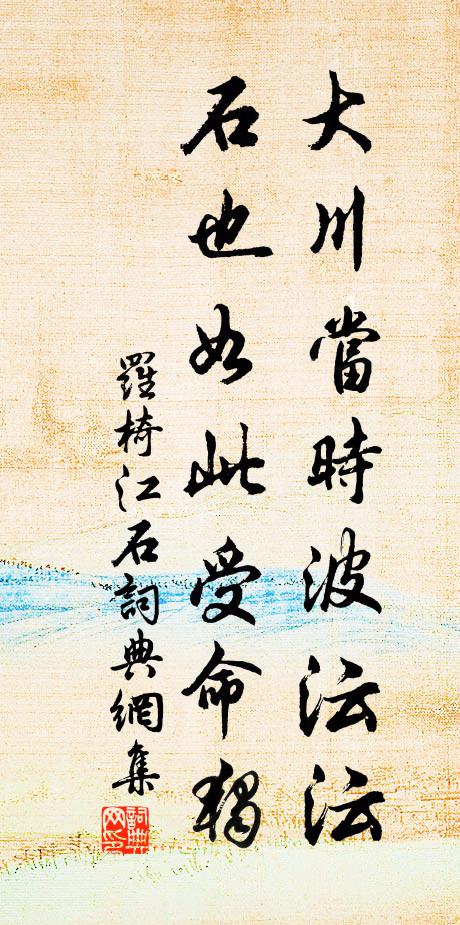 大川當時波沄沄
石也如此受命獨
羅椅江石詞典網集
詞典網印